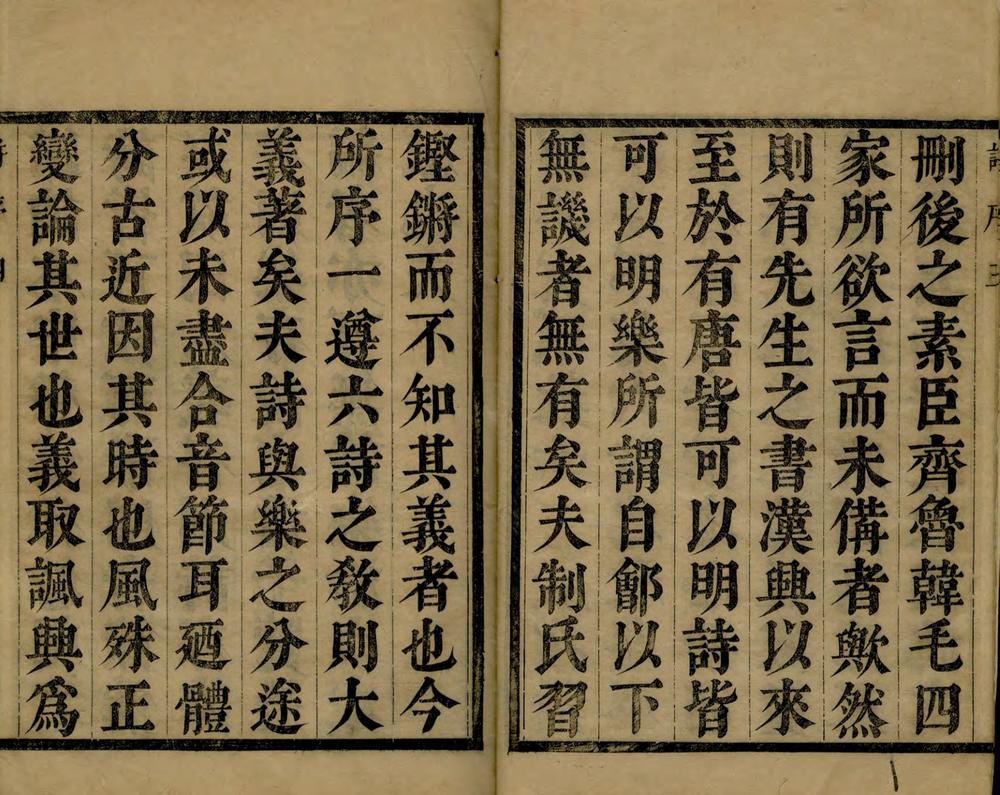 刪後之素臣齊魯韓毛四
家所欲言而未備者歟然
則有先生之書漢興以來
至於有唐皆可以明詩皆
可以明樂所謂自鄶以下
無譏者無有矣夫制氏習
鏗鏘而不知其義者也今
所序一遵六詩之敎則大
義著矣夫詩與樂之分途
或以未盡合音節耳廼體
分古近因其時也風殊正
變論其世也義取諷興爲